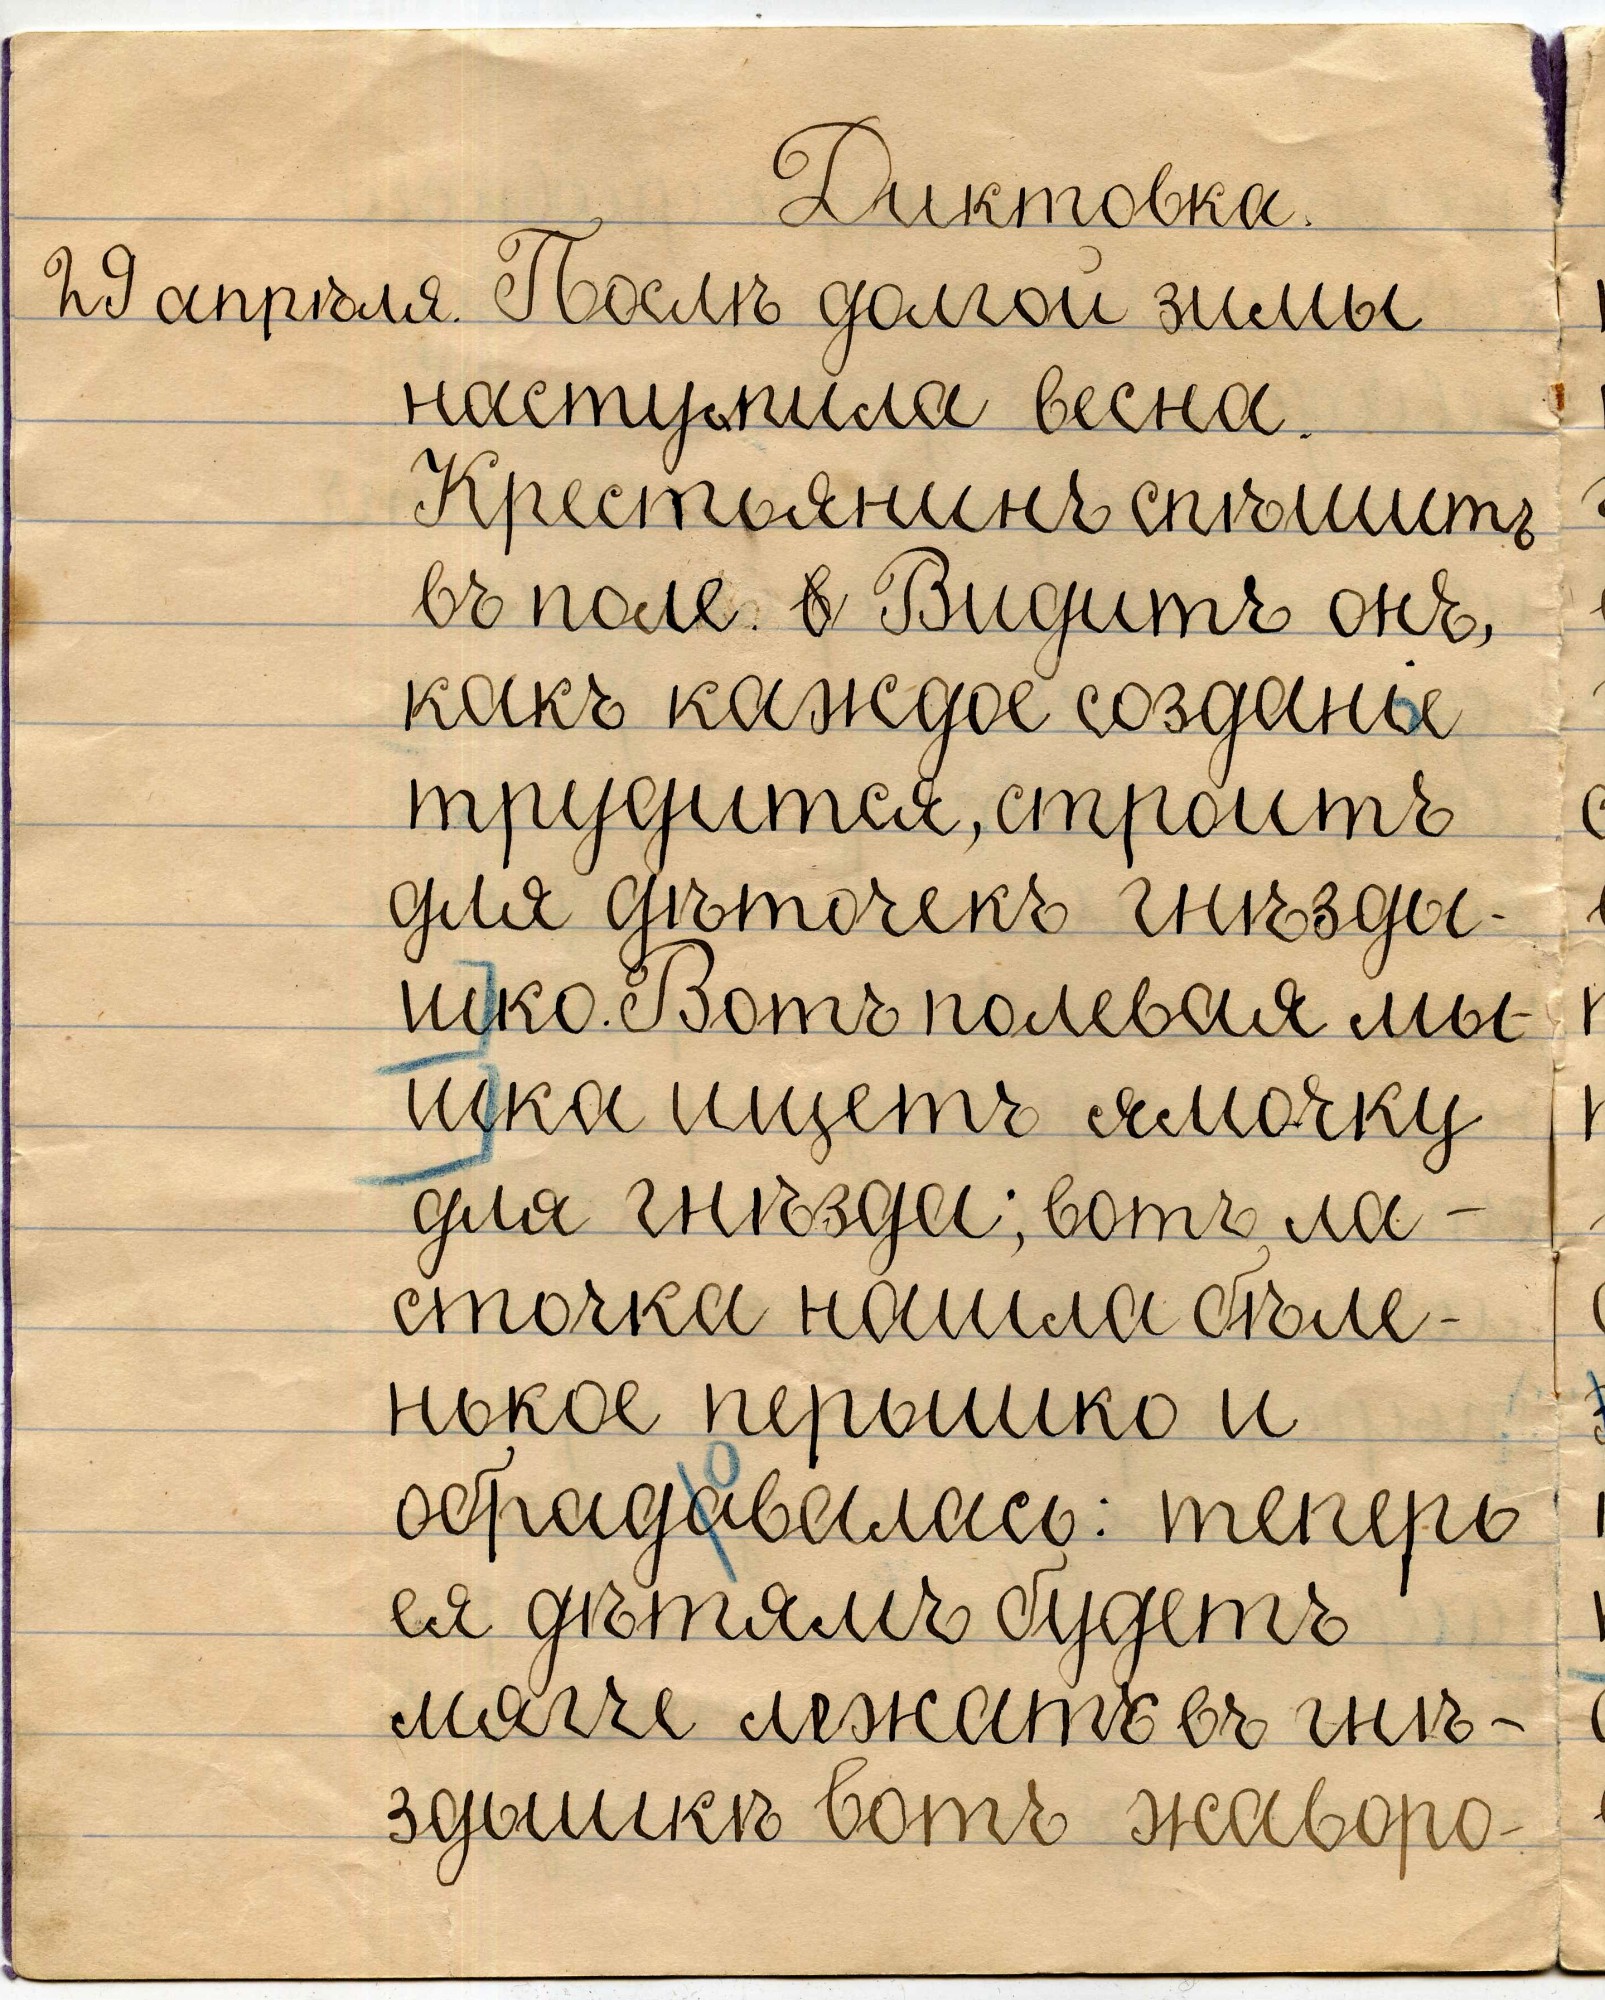 Диктовка.
29 апрѣля. Послѣ долгой зимы
наступила весна.
Крестьянинъ спѣшитъ
въ поле. в Видитъ онъ,
какъ каждое созданіе
трудится, строитъ
для дѣточекъ гнѣзды-
шко. Вотъ полевая мы-
шка ищетъ ямочку
для гнѣзда; вотъ ла-
сточка нашла бѣле-
нькое перышко и
о
обрадавалась: теперь
ея дѣтямъ будетъ
мягче лежать въ гнѣ-
здышкѣ вотъ жаворо-